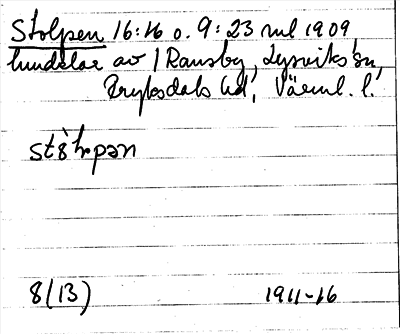 Stolpen 16:16 o. 9:23 mtl 1909,
hundelar av 1 Ransby, Lysviks sn,
Fryksdals hd, Värml. l.
stòlpən
8(13) 1911-16